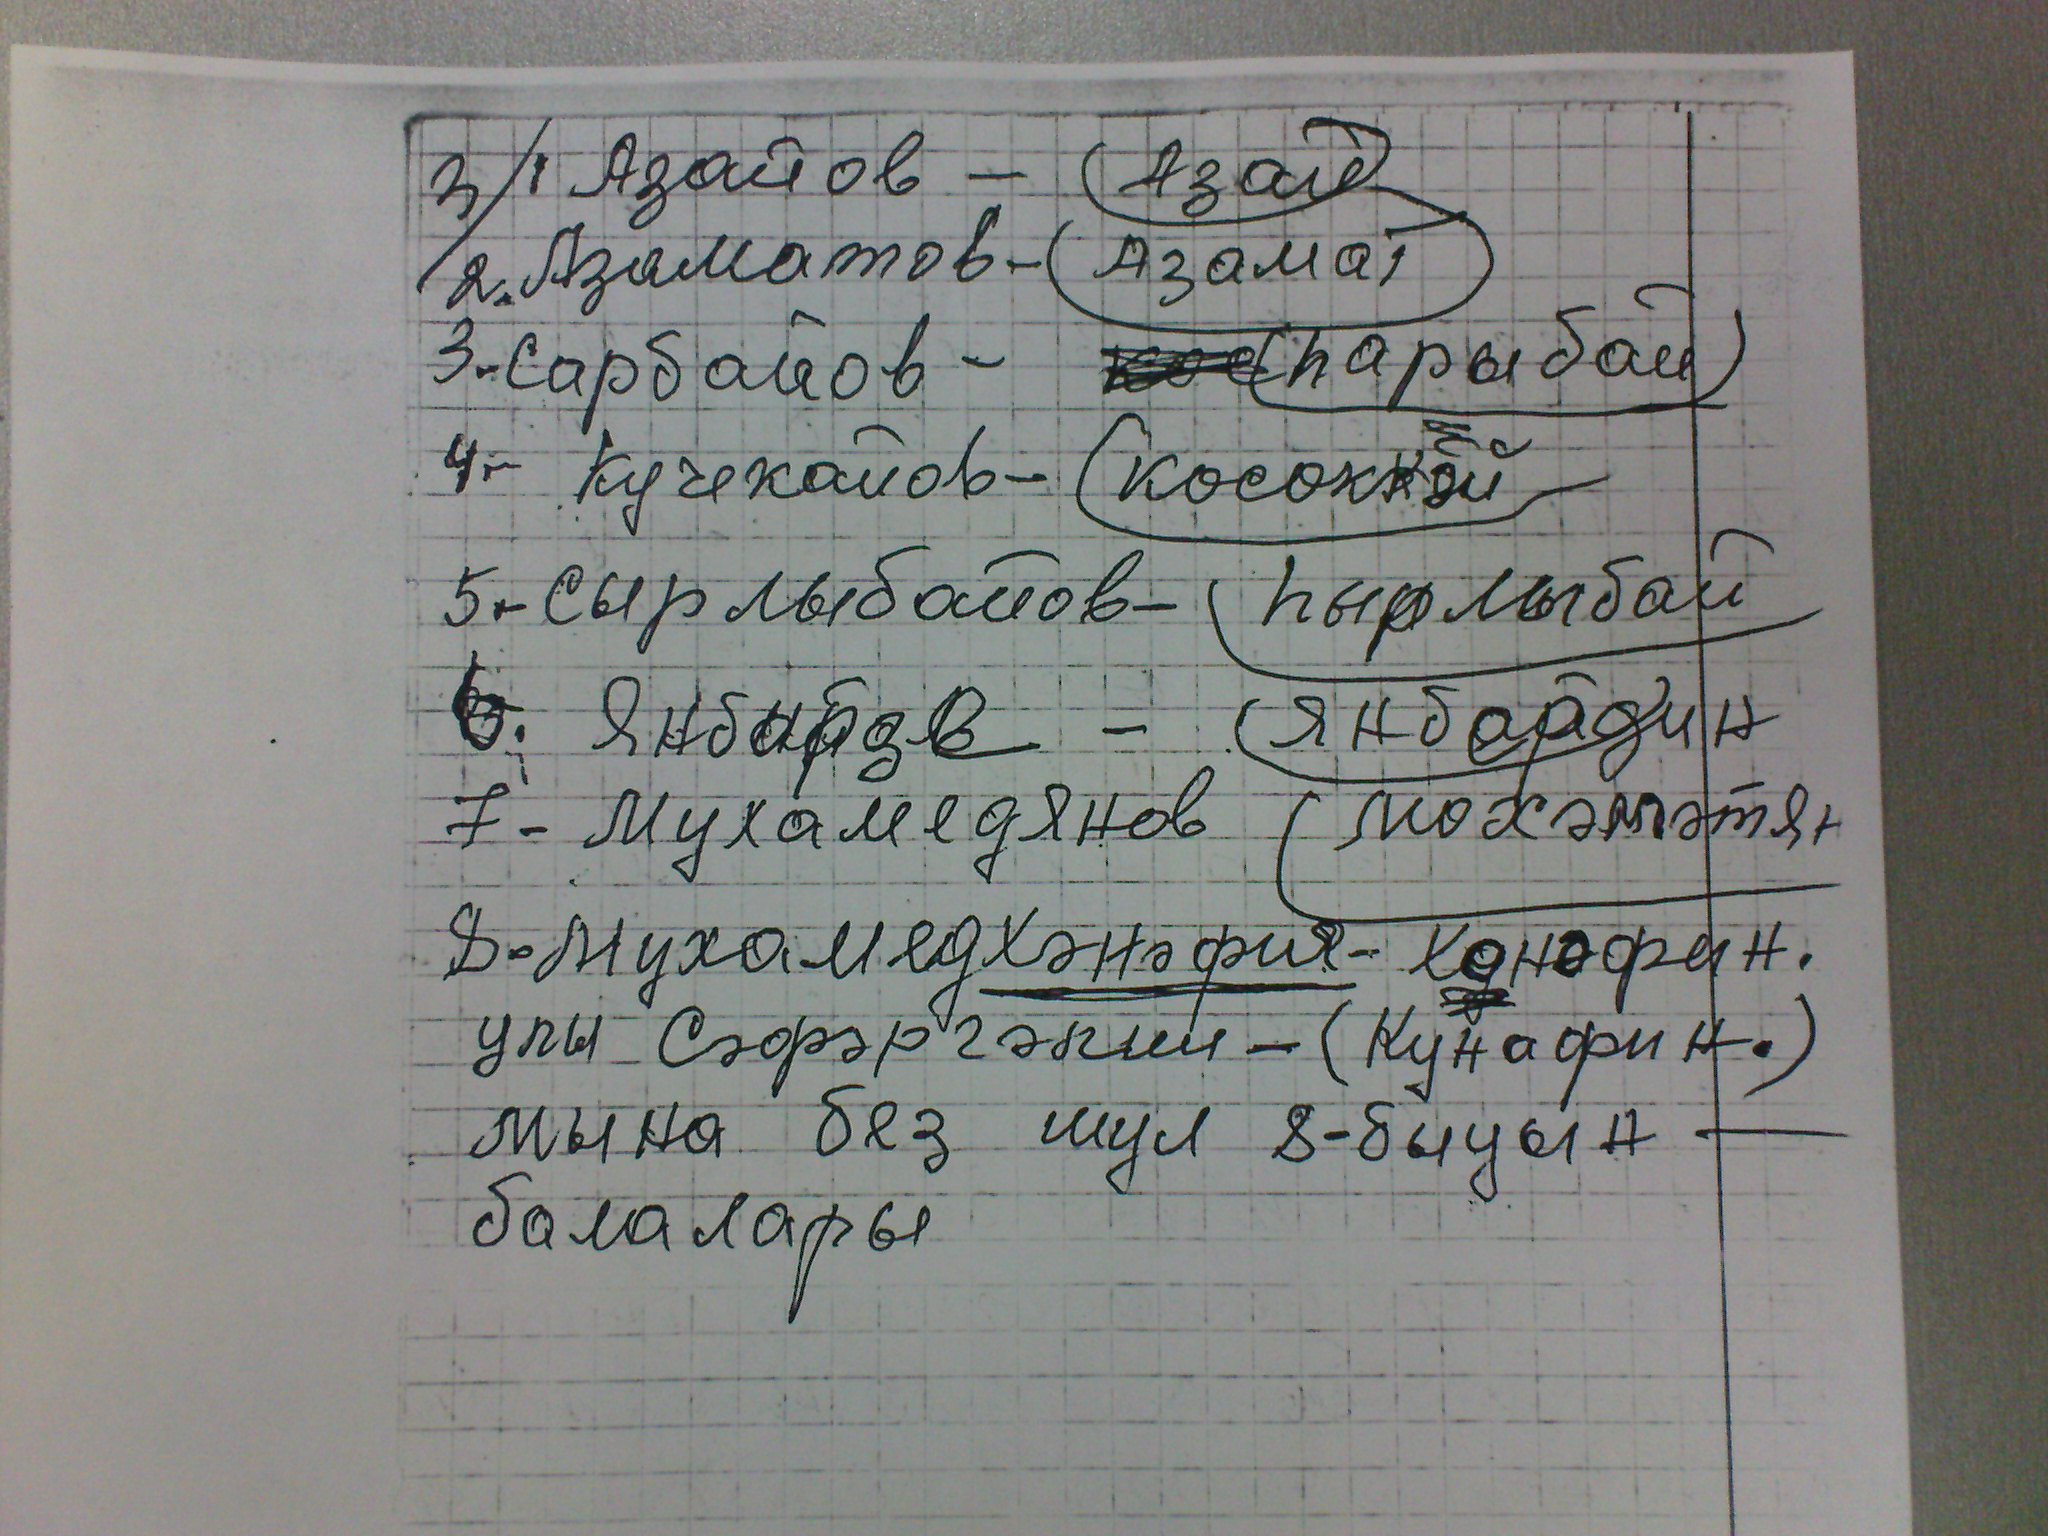 3/1 Азайов - (Азай
2. Азаматов - (Азамат)
3. Сарбайов - (Һарыбай)
4- Кучекайов - (Косоккәй
5- Сырлыбайов - (Һырлыбай
6. - (Янбайдин
7- Мухамедянов (Мохәмәтян
8. МухамедХәнәфия - Хәнәфин.
улы Сәфәргәлин - (Кунафин.)
мына без шул 8-быуын -
балалары